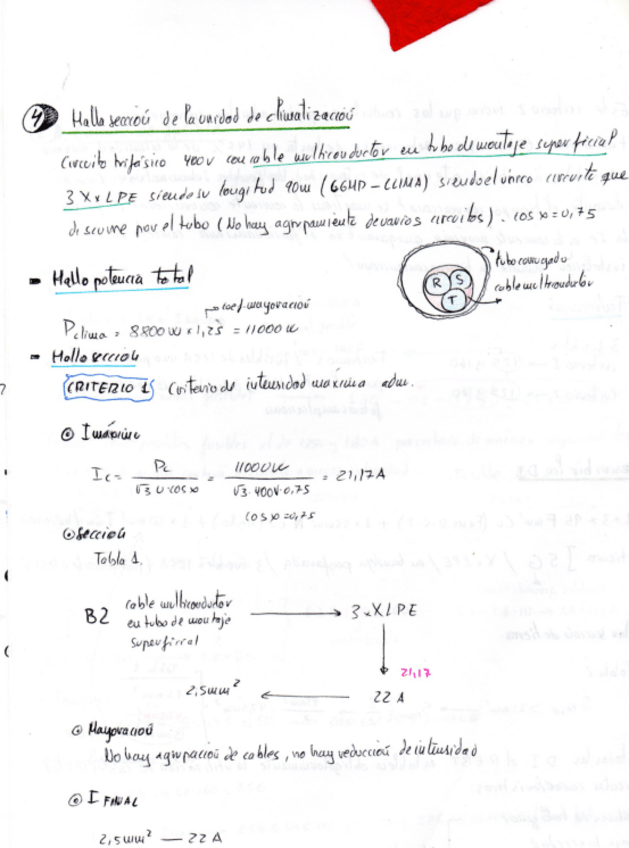 4 Halla sección de la unidad de climatización
Circuito trifásico 400v con cable multiconductor en tubo de montaje superficial
3 x XLPE siendo su longitud 90m (GGHD - CLIMA) siendo el único circuito que
discurre por el tubo (No hay agrupamiento de varios circuitos). cos = 0,75
- Hallo potencia total
tubo corrugado
cable multiconductor
R S
T
coef. mayoración
Pclima = 8800W x 1,25 = 11000W
- Hallo sección
CRITERIO 1 Criterio de intensidad máxima adm.
I máxima
Ic = Pc / √3·U·cos = 11000W / √3·400V·0,75 = 21,17A
cos = 0,75
Sección
Tabla 1
B2 cable multiconductor en tubo de montaje superficial → 3 x XLPE
21,17
2,5mm² ← 22 A
Mayoración
No hay agrupación de cables, no hay reducción de intensidad
I FINAL
2,5mm² — 22 A